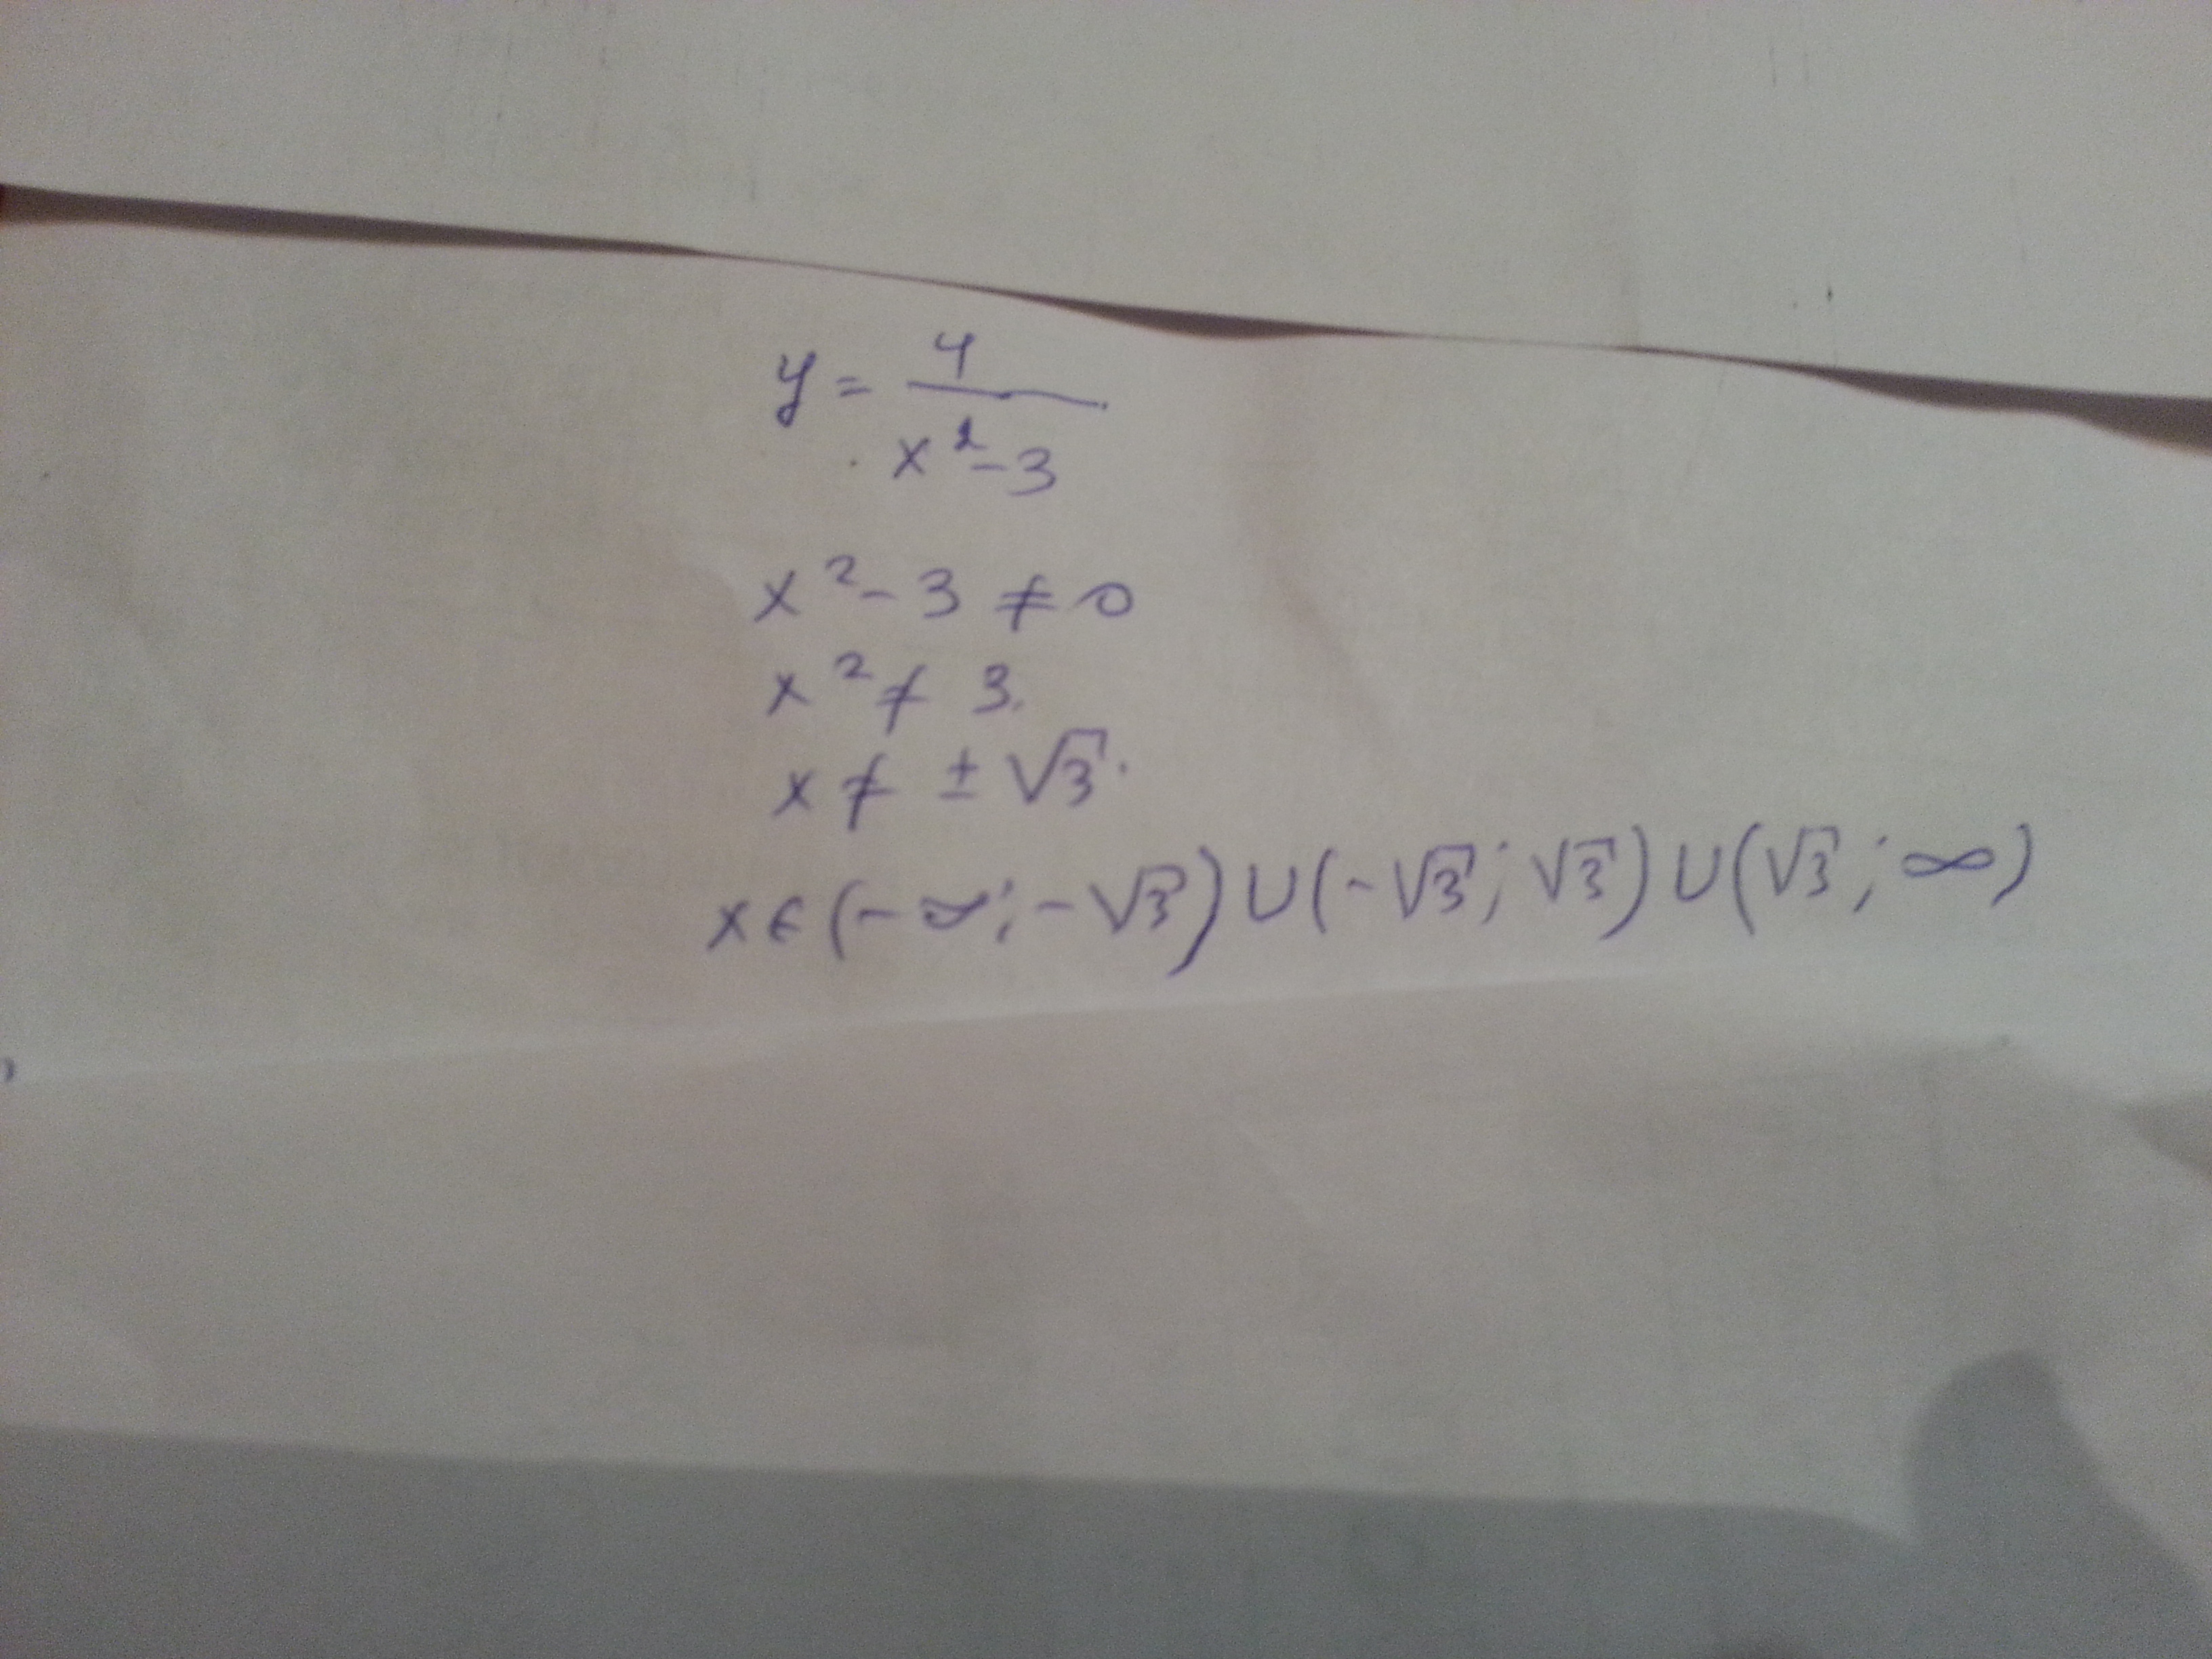 y = 4 / x² - 3
x² - 3 ≠ 0
x² ≠ 3.
x ≠ ± √3.
x ∈ (-∞; -√3) ∪ (-√3; √3) ∪ (√3; ∞)